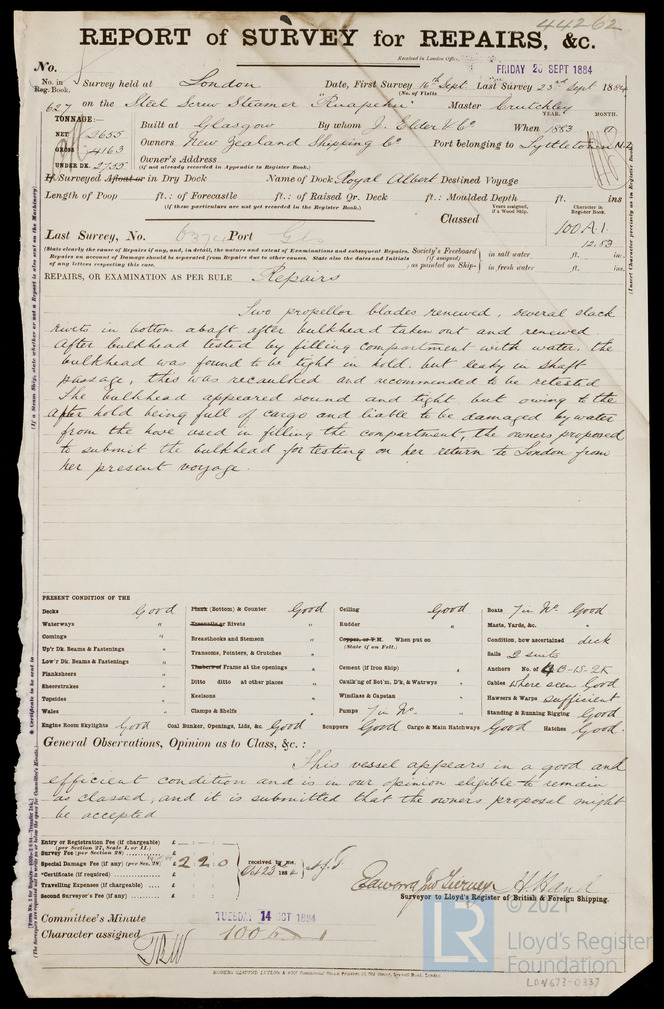 44262
REPORT of SURVEY for REPAIRS, &c.
Received in London Office, FRIDAY 26 SEPT 1884
No.
No. in Reg. Book. Survey held at London Date, First Survey 16th Sept Last Survey 23rd Sept 1884
(No. of Visits
627 on the Steel Screw Steamer "Ruapehu" Master Crutchley
TONNAGE:— YEAR. MONTH.
NET 2655 Built at Glasgow By whom J. Elder & Co When 1883
GROSS 4163 Owners New Zealand Shipping Co Port belonging to Lyttleton N.Z.
UNDER DK. 2755 Owner's Address
(if not already recorded in Appendix to Register Book.)
If Surveyed Afloat or in Dry Dock Name of Dock Royal Albert Destined Voyage
Length of Poop ft.: of Forecastle ft.: of Raised Qr. Deck ft.: Moulded Depth ft. ins
(if these particulars are not yet recorded in the Register Book.)
Years assigned, if a Wood Ship. Character in Register Book.
Classed 100 A.1.
12.83
Last Survey, No. Port
(State clearly the cause of Repairs if any, and, in detail, the nature and extent of Examinations and subsequent Repairs.
Repairs on account of Damage should be separated from Repairs due to other causes. State also the dates and Initials
of any letters respecting this case.
Society's Freeboard (if assigned) as painted on Ship- in salt water ft. in.
in fresh water ft. ins.
REPAIRS, OR EXAMINATION AS PER RULE Repairs
Two propellor blades renewed, several slack
rivets in bottom abaft after bulkhead taken out and renewed
After bulkhead tested by filling compartment with water, the
bulkhead was found to be tight in hold, but leaky in shaft
passage, this was recaulked and recommended to be retested
The bulkhead appeared sound and tight but owing to the
after hold being full of cargo and liable to be damaged by water
from the hose used in filling the compartment, the owners proposed
to submit the bulkhead for testing on her return to London from
her present voyage.
PRESENT CONDITION OF THE
Decks Good
Waterways "
Comings "
Up'r Dk. Beams & Fastenings "
Low'r Dk. Beams & Fastenings "
Planksheers "
Sheerstrakes "
Topsides "
Wales "
Plank (Bottom) & Counter Good
Treenails or Rivets "
Breasthooks and Stemson "
Transoms, Pointers, & Crutches "
Timbers of Frame at the openings "
Ditto ditto at other places "
Keelsons "
Clamps & Shelfs "
Ceiling Good
Rudder "
Copper, or Y.M. When put on
(State if on Felt.)
Cement (if from Ship) "
Caulk'ng of Bot'm, D'k, & Watrwys "
Windlass & Capstan "
Pumps
Boats 7 in No. Good
Masts, Yards, &c. "
Condition, how ascertained deck
Sails 2 suits
Anchors No. of 4B-1S-2K
Cables where seen Good
Hawsers & Warps sufficient
Standing & Running Rigging Good
Engine Room Skylights Good Coal Bunker, Openings, Lids, &c. Good Scuppers Good Cargo & Main Hatchways Good Hatches Good.
General Observations, Opinion as to Class, &c. :
This vessel appears in a good and
efficient condition and is in our opinion eligible to remain
as classed, and it is submitted that the owners proposal might
be accepted
Entry or Registration Fee (if chargeable) £
(per Section 27, Scale 1, or 11.)
Survey Fee (per Section 28) £
Special Damage Fee (if any) (per Sec. 28) £ 2 2 0
*Certificate (if required) £
Travelling Expenses (if chargeable) £
Second Surveyor's Fee (if any) £
received by me,
Surveyor to Lloyd's Register of British & Foreign Shipping.
Committee's Minute TUESDAY 14 OCT 1884
Character assigned 100 A 1
© 2021
LR
Lloyd's Register
Foundation
LON673-0337